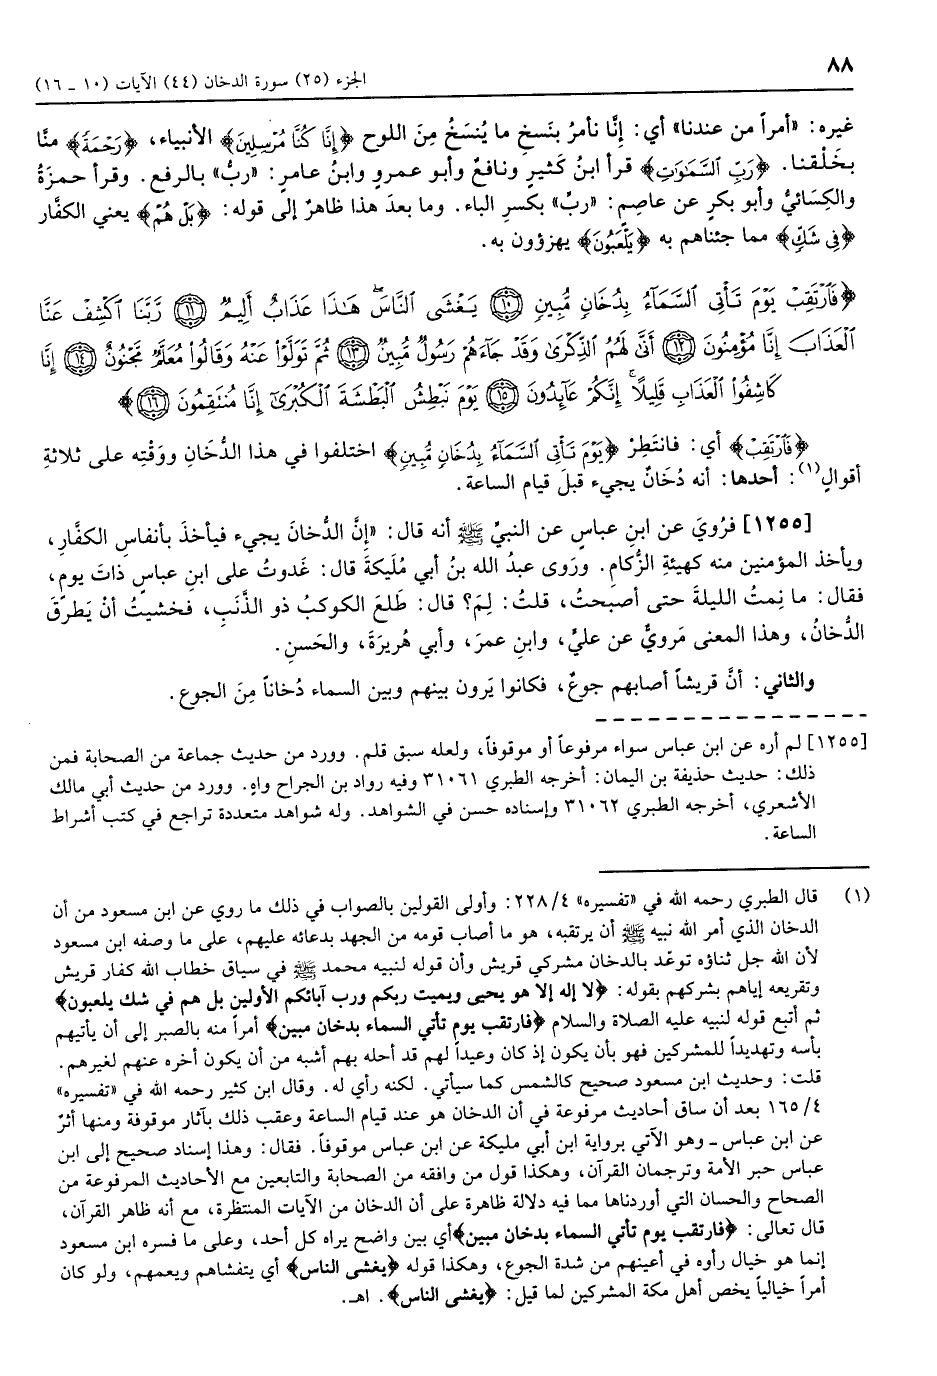 ٨٨
الجزء (٢٥) سورة الدخان (٤٤) الآيات (١٠ ـ ١٦)
غيره: «أمراً من عندنا» أي: إنَّا نأمرُ بنَسخِ ما يُنسَخُ مِنَ اللوح ﴿إِنَّا كُنَّا مُرْسِلِينَ﴾ الأنبياء، ﴿رَحْمَةً﴾ منَّا
بخَلْقنا. ﴿رَبِّ ٱلسَّمَٰوَٰتِ﴾ قرأ ابنُ كَثيرٍ ونافعٌ وأبو عمروٍ وابنُ عامرٍ: «ربُّ» بالرفع. وقرأ حمزةُ
والكِسائيُّ وأبو بكرٍ عن عاصمٍ: «ربِّ» بكسرِ الباء. وما بعدَ هذا ظاهرٌ إلى قوله: ﴿بَلْ هُمْ﴾ يعني الكفَّار
﴿فِى شَكٍّ﴾ مما جئناهم به ﴿يَلْعَبُونَ﴾ يهزؤون به.
﴿فَٱرْتَقِبْ يَوْمَ تَأْتِى ٱلسَّمَآءُ بِدُخَانٍ مُّبِينٍ ١٠ يَغْشَى ٱلنَّاسَ هَٰذَا عَذَابٌ أَلِيمٌ ١١ رَّبَّنَا ٱكْشِفْ عَنَّا
ٱلْعَذَابَ إِنَّا مُؤْمِنُونَ ١٢ أَنَّىٰ لَهُمُ ٱلذِّكْرَىٰ وَقَدْ جَآءَهُمْ رَسُولٌ مُّبِينٌ ١٣ ثُمَّ تَوَلَّوْا۟ عَنْهُ وَقَالُوا۟ مُعَلَّمٌ مَّجْنُونٌ ١٤ إِنَّا
كَاشِفُوا۟ ٱلْعَذَابِ قَلِيلًا إِنَّكُمْ عَآئِدُونَ ١٥ يَوْمَ نَبْطِشُ ٱلْبَطْشَةَ ٱلْكُبْرَىٰٓ إِنَّا مُنتَقِمُونَ ١٦﴾
﴿فَٱرْتَقِبْ﴾ أي: فانتَظِرْ ﴿يَوْمَ تَأْتِى ٱلسَّمَآءُ بِدُخَانٍ مُّبِينٍ﴾ اختلفوا في هذا الدُّخَانِ ووَقْتِه على ثلاثةِ
أقوالٍ(١): أحدها: أنه دُخَانٌ يجيء قبلَ قيام الساعة.
[١٢٥٥] فرُويَ عن ابن عباسٍ عن النبيِّ ﷺ أنه قال: «إنَّ الدُّخانَ يجيء فيأخذَ بأنفاسِ الكفَّارِ،
ويأخذ المؤمنين منه كهيئةِ الزُّكام. ورَوى عبدُ الله بنُ أبي مُلَيكةَ قال: غَدوتُ على ابنِ عباسٍ ذاتَ يومٍ،
فقال: ما نِمتُ الليلةَ حتى أصبحتُ، قلتُ: لِمَ؟ قال: طَلعَ الكوكبُ ذو الذَّنَبِ، فخشيتُ أنْ يَطرُقَ
الدُّخانُ، وهذا المعنى مَرويٌّ عن عليٍّ، وابنِ عمرَ، وأبي هُريرَةَ، والحَسنِ.
والثاني: أنَّ قريشاً أصابهم جوعٌ، فكانوا يَرون بينهم وبين السماء دُخاناً مِنَ الجوع.
[١٢٥٥] لم أره عن ابن عباس سواء مرفوعاً أو موقوفاً، ولعله سبق قلم. وورد من حديث جماعة من الصحابة فمن
ذلك: حديث حذيفة بن اليمان: أخرجه الطبري ٣١٠٦١ وفيه رواد بن الجراح واهٍ. وورد من حديث أبي مالك
الأشعري، أخرجه الطبري ٣١٠٦٢ وإسناده حسن في الشواهد. وله شواهد متعددة تراجع في كتب أشراط
الساعة.
(١) قال الطبري رحمه الله في «تفسيره» ٢٢٨/٤: وأولى القولين بالصواب في ذلك ما روي عن ابن مسعود من أن
الدخان الذي أمر الله نبيه ﷺ أن يرتقبه، هو ما أصاب قومه من الجهد بدعائه عليهم، على ما وصفه ابن مسعود
لأن الله جل ثناؤه توعّد بالدخان مشركي قريش وأن قوله لنبيه محمد ﷺ في سياق خطاب الله كفار قريش
وتقريعه إياهم بشركهم بقوله: ﴿لا إله إلا هو يحيى ويميت ربكم ورب آبائكم الأولين بل هم في شك يلعبون﴾
ثم أتبع قوله لنبيه عليه الصلاة والسلام ﴿فارتقب يوم تأتي السماء بدخان مبين﴾ أمراً منه بالصبر إلى أن يأتيهم
بأسه وتهديداً للمشركين فهو بأن يكون إذ كان وعيداً لهم قد أحله بهم أشبه من أن يكون أخره عنهم لغيرهم.
قلت: وحديث ابن مسعود صحيح كالشمس كما سيأتي. لكنه رأي له. وقال ابن كثير رحمه الله في «تفسيره»
١٦٥/٤ بعد أن ساق أحاديث مرفوعة في أن الدخان هو عند قيام الساعة وعقب ذلك بآثار موقوفة ومنها أثرٌ
عن ابن عباس ـ وهو الآتي برواية ابن أبي مليكة عن ابن عباس موقوفاً. فقال: وهذا إسناد صحيح إلى ابن
عباس حبر الأمة وترجمان القرآن، وهكذا قول من وافقه من الصحابة والتابعين مع الأحاديث المرفوعة من
الصحاح والحسان التي أوردناها مما فيه دلالة ظاهرة على أن الدخان من الآيات المنتظرة، مع أنه ظاهر القرآن،
قال تعالى: ﴿فارتقب يوم تأتي السماء بدخان مبين﴾أي بين واضح يراه كل أحد، وعلى ما فسره ابن مسعود
إنما هو خيال رأوه في أعينهم من شدة الجوع، وهكذا قوله ﴿يغشى الناس﴾ أي يتغشاهم ويعمهم، ولو كان
أمراً خيالياً يخص أهل مكة المشركين لما قيل: ﴿يغشى الناس﴾. اهـ.